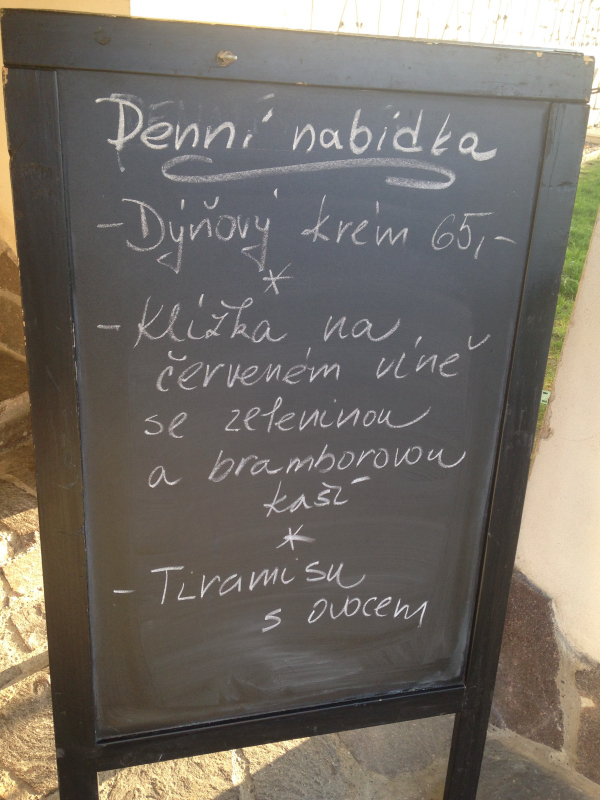 Denní nabídka
- Dýňový krém 65,-
*
- Kližka na
červeném víně
se zeleninou
a bramborovou
kaší
*
- Tiramisu
s ovocem